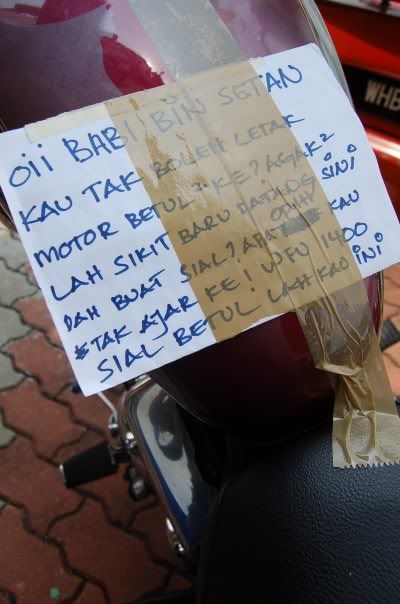 OII BABI BIN SETAN
KAU TAK BOLEH LETAK
MOTOR BETUL2 KE? AGAK2
LAH SIKIT BARU DATANG SINI
DAH BUAT SIAL? KAU
TAK AJAR KE! WFU 1400
SIAL BETUL LAH KAU INI
WHB